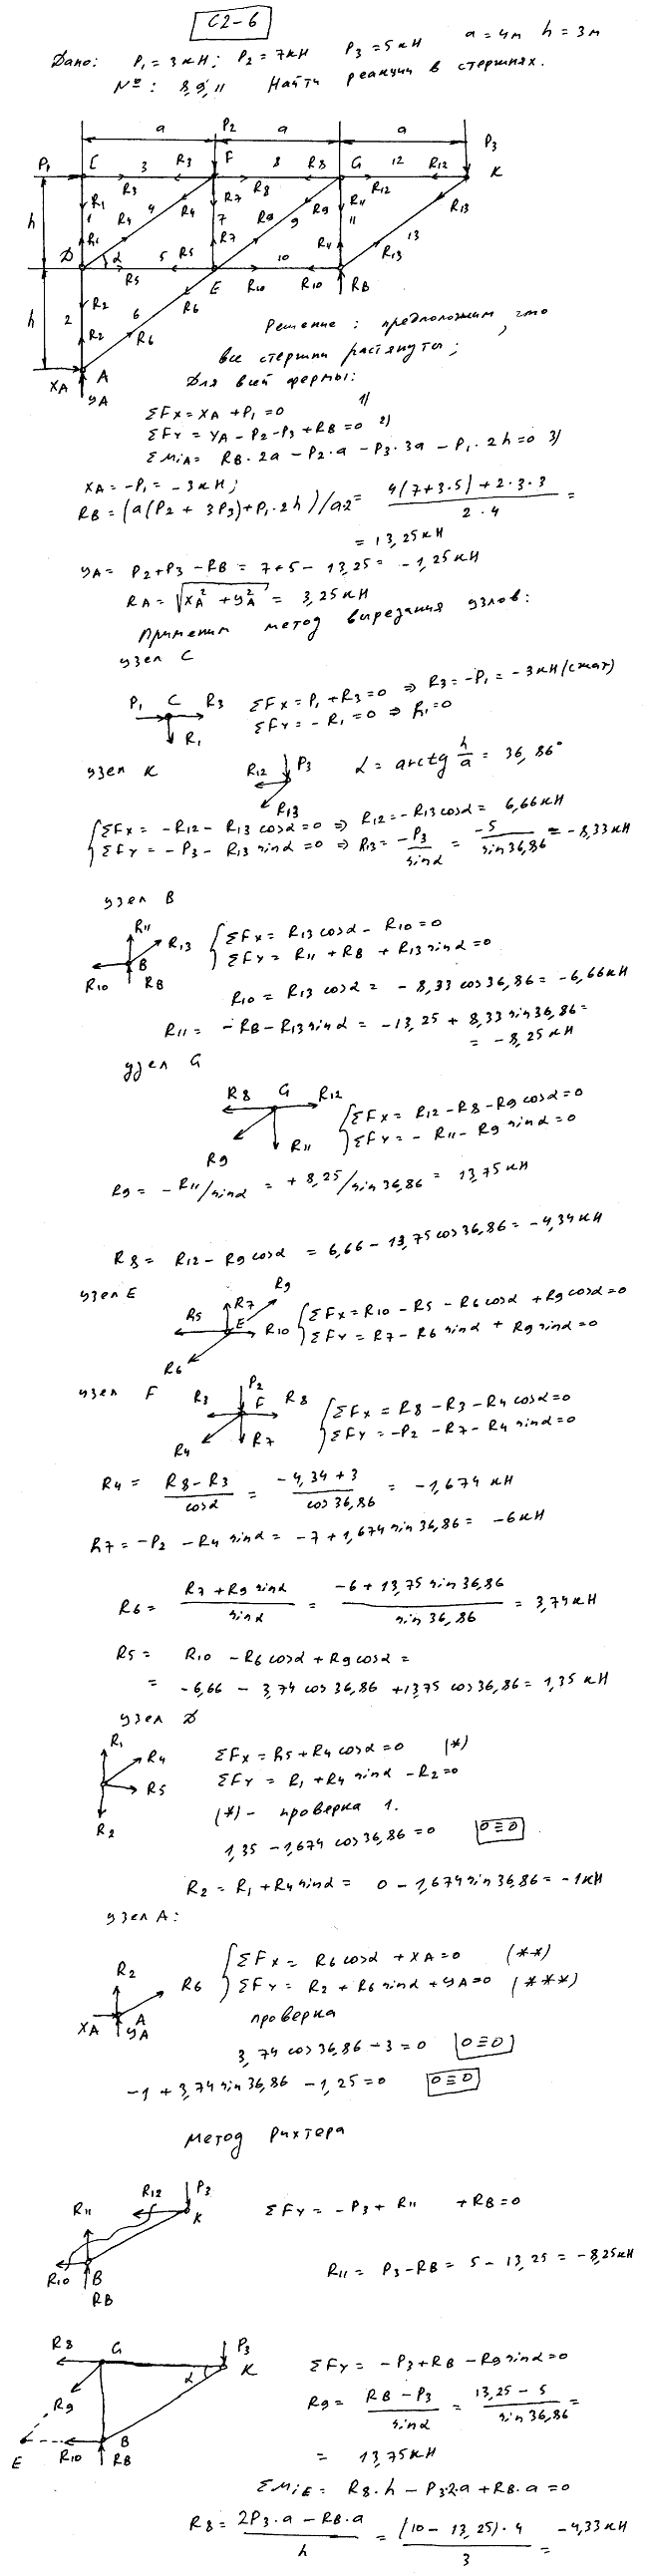 С2-6
Дано: P₁ = 3 кН; P₂ = 7 кН P₃ = 5 кН a = 4м h = 3м
№: 8,9,11 Найти реакции в стержнях.
a a a
P₂ P₃
P₁ C 3 R₃ F 8 R₈ G 12 R₁₂ K
R₃ R₈ R₁₂
R₁ R₄ R₇ R₉ R₁₁ R₁₃
h 1 4 7 9 11 13
R₁ R₄ R₇ R₉ R₁₁ R₁₃
D α 5 R₅ 10
R₅ E R₁₀ R₁₀ RB
h 2 R₂ 6 R₆
R₂ R₆
XA A
YA
Решение: предположим, что
все стержни растянуты;
Для всей фермы:
ΣFx = XA + P₁ = 0 1)
ΣFY = YA - P₂ - P₃ + RB = 0 2)
ΣMiA = RB·2a - P₂·a - P₃·3a - P₁·2h = 0 3)
XA = -P₁ = -3 кН;
RB = (a(P₂ + 3P₃) + P₁·2h)/a2 = 4(7+3·5) + 2·3·3 / 2·4 =
= 13,25 кН
YA = P₂ + P₃ - RB = 7 + 5 - 13,25 = -1,25 кН
RA = √(XA² + YA²) = 3,25 кН
Применим метод вырезания узлов:
узел C
P₁ C R₃ R₁ ΣFx = P₁ + R₃ = 0 ⇒ R₃ = -P₁ = -3 кН (сжат)
ΣFY = -R₁ = 0 ⇒ R₁ = 0
узел K R₁₂ P₃ R₁₃ α = arctg h/a = 36,86°
ΣFx = -R₁₂ - R₁₃ cosα = 0 ⇒ R₁₂ = -R₁₃ cosα = 6,66 кН
ΣFY = -P₃ - R₁₃ sinα = 0 ⇒ R₁₃ = -P₃/sinα = -5/sin36,86 = -8,33 кН
узел B
R₁₁ R₁₃ B R₁₀ RB
ΣFx = R₁₃ cosα - R₁₀ = 0
ΣFY = R₁₁ + RB + R₁₃ sinα = 0
R₁₀ = R₁₃ cosα = -8,33 cos36,86 = -6,66 кН
R₁₁ = -RB - R₁₃ sinα = -13,25 + 8,33 sin36,86 =
= -8,25 кН
узел G
R₈ G R₁₂ R₉ R₁₁
ΣFx = R₁₂ - R₈ - R₉ cosα = 0
ΣFY = -R₁₁ - R₉ sinα = 0
R₉ = -R₁₁/sinα = +8,25/sin36,86 = 13,75 кН
R₈ = R₁₂ - R₉ cosα = 6,66 - 13,75 cos36,86 = -4,34 кН
узел E
R₅ R₇ R₉ E R₁₀ R₆
ΣFx = R₁₀ - R₅ - R₆ cosα + R₉ cosα = 0
ΣFY = R₇ - R₆ sinα + R₉ sinα = 0
узел F
R₃ P₂ F R₈ R₄ R₇
ΣFx = R₈ - R₃ - R₄ cosα = 0
ΣFY = -P₂ - R₇ - R₄ sinα = 0
R₄ = R₈ - R₃ / cosα = -4,34 + 3 / cos36,86 = -1,674 кН
R₇ = -P₂ - R₄ sinα = -7 + 1,674 sin36,86 = -6 кН
R₆ = R₇ + R₉ sinα / sinα = -6 + 13,75 sin36,86 / sin36,86 = 3,74 кН
R₅ = R₁₀ - R₆ cosα + R₉ cosα =
= -6,66 - 3,74 cos36,86 + 13,75 cos36,86 = 1,35 кН
узел D
R₁ R₄ R₅ R₂
ΣFx = R₅ + R₄ cosα = 0 (*)
ΣFY = R₁ + R₄ sinα - R₂ = 0
(*) - проверка 1.
1,35 - 1,674 cos36,86 = 0 0≡0
R₂ = R₁ + R₄ sinα = 0 - 1,674 sin36,86 = -1 кН
узел A:
R₂ R₆ XA A YA
ΣFx = R₆ cosα + XA = 0 (**)
ΣFY = R₂ + R₆ sinα + YA = 0 (***)
проверка
3,74 cos36,86 - 3 = 0 0≡0
-1 + 3,74 sin36,86 - 1,25 = 0 0≡0
метод Рихтера
R₁₂ P₃ K R₁₁ R₁₀ B RB
ΣFY = -P₃ + R₁₁ + RB = 0
R₁₁ = P₃ - RB = 5 - 13,25 = -8,25 кН
R₈ G P₃ K α R₉ E R₁₀ B RB
ΣFY = -P₃ + RB - R₉ sinα = 0
R₉ = RB - P₃ / sinα = 13,25 - 5 / sin36,86 =
= 13,75 кН
ΣMiE = R₈·h - P₃·2a + RB·a = 0
R₈ = 2P₃·a - RB·a / h = (10 - 13,25)·4 / 3 = -4,33 кН